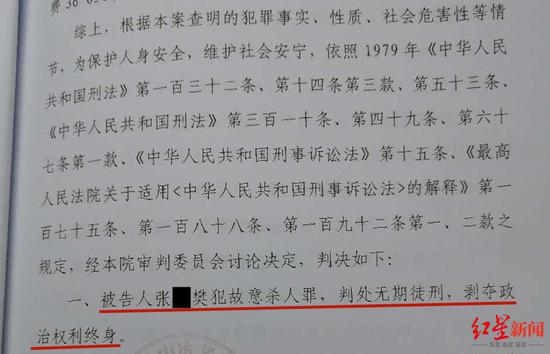 综上，根据本案查明的犯罪事实、性质、社会危害性等情
节，为保护人身安全，维护社会安宁，依照 1979 年《中华人民
共和国刑法》第一百三十二条、第十四条第三款、第五十三条、
《中华人民共和国刑法》第三百一十条、第四十九条、第六十
七条第一款、《中华人民共和国刑事诉讼法》第十五条、《最高
人民法院关于适用<中华人民共和国刑事诉讼法>的解释》第一
百七十五条、第一百八十八条、第一百九十二条第一、二款之
规定，经本院审判委员会讨论决定，判决如下：
一、被告人张樊犯故意杀人罪，判处无期徒刑，剥夺政
治权利终身。
红星新闻